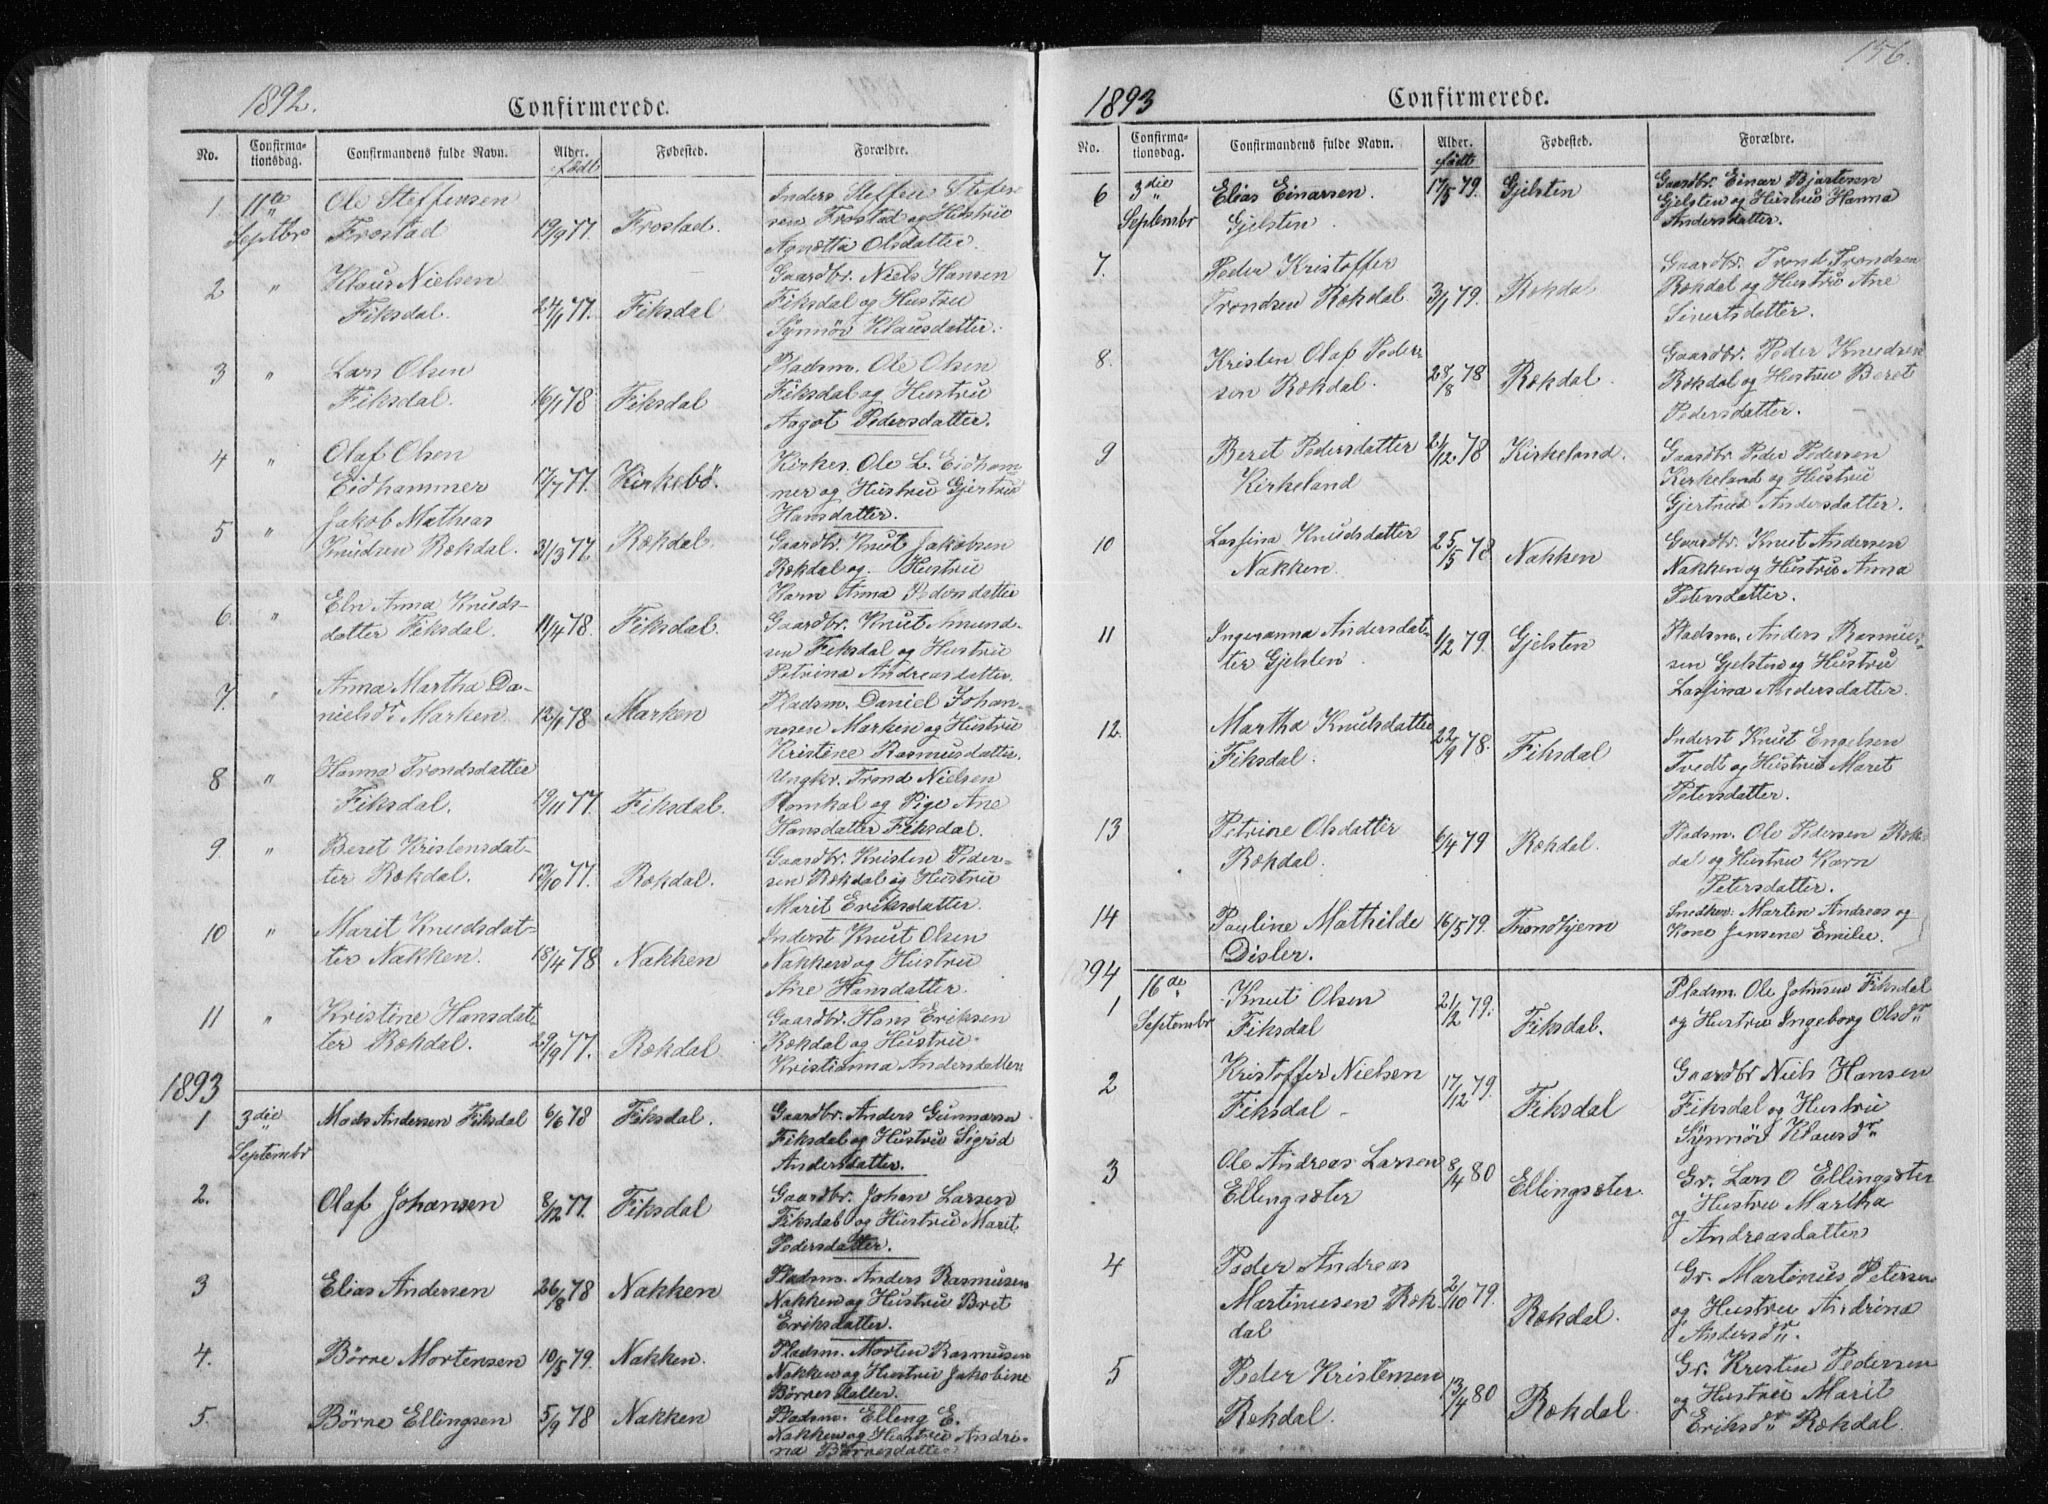 1892.
Confirmerede.
No. Confirmationsdag. Confirmandens fulde Navn. Alder. født Fødested. Forældre.
1 11te Septbr Ole Steffensen Frostad 19/9 77. Frostad. Inders Steffen Stefensen Frostad og Hustru Agnetta Olsdatter.
2 " Klaus Nielsen Fiksdal. 24/1 77. Fiksdal Gaardbr. Niels Hansen Fiksdal og Hustru Synnöv Klausdatter.
3 " Lars Olsen Fiksdal. 16/1 78 Fiksdal Pladsm. Ole Olsen Fiksdal og Hustru Aagot Pedersdatter.
4 " Olaf Olsen Eidhammer 17/7 77. Kirkebö. Kirkes. Ole L. Eidhammer og Hustru Gjertru Hansdatter.
5 " Jakob Mathias Knudsen Rekdal. 31/3 77. Rekdal. Gaardbr. Knut Jakobsen Rekdal og Hustru Karn Anna Pedersdatter
6. " Eln Anna Knudsdatter Fiksdal. 11/4 78. Fiksdal. Gaardbr. Knut Amundsen Fiksdal og Hustru Petrina Andreasdatter.
7. " Anna Martha Danielsdr Marken 12/1 78 Marken Pladsm. Daniel Johannesen Marken og Hustru Kristine Rasmusdatter.
8 " Hanna Trondsdatter Fiksdal. 19/11 77. Fiksdal. Ungkr. Trond Nielsen Romkal og Pige Ane Hansdatter Fiksdal.
9 " Beret Kristensdatter Rekdal. 13/10 77. Rekdal. Gaardbr. Kristen Pedersen Rekdal og Hustru Marit Eriksdatter.
10 " Marit Knudsdatter Nakken. 18/4 78 Nakken Inderst Knut Olsen Nakken og Hustru Ane Hansdatter.
11 " Kristine Hansdatter Rekdal. 29/9 77. Rekdal. Gaardbr. Hans Eriksen Rekdal og Hustru Kristianna Andersdatter
1893
1 3die Septembr Mads Andersen Fiksdal 6/6 78 Fiksdal. Gaardbr. Anders Gunnarsn Fiksdal og Hustru Sigrid Andersdatter.
2. Olaf Johansen 8/12 77. Fiksdal Gaardbr. Johan Larsen Fiksdal og Hustru Marit Pedersdatter.
3 Elias Andersen 26/8 78 Nakken Pladsm. Anders Rasmusen Nakken og Hustru Bret Eriksdatter.
4. Börre Mortensen 10/5 79. Nakken. Pladsm. Morten Rasmusen Nakken og Hustru Jakobine Börresdatter.
5. Börre Ellingsen 5/9 78 Nakken Pladsm. Elling E. Nakken og Hustru Andrina Börresdatter
156.
1893
Confirmerede.
No. Confirmationsdag. Confirmandens fulde Navn. Alder. født Fødested. Forældre.
6 3die Septembr Elias Einarsen Gjelsten. 17/5 79. Gjelsten Gaardbr. Einar Bjartesen Gjelsten og Hustru Hanna Andersdatter.
7. Peder Kristoffer Trondsen Rekdal 3/1 79. Rekdal Gaardbr. Trond Trondsen Rekdal og Hustru Ane Sivertsdatter.
8. Kristen Olaf Pedersen Rekdal. 28/8 78 Rekdal. Gaardbr. Peder Knudsen Rekdal og Hustru Beret Pedersdatter.
9 Beret Pedersdatter Kirkeland 21/12 78 Kirkeland. Gaardbr. Peder Pedersen Kirkeland og Hustru Gjertrud Andersdatter.
10 Lassina Knudsdatter Nakken. 25/5 78 Nakken Gaardbr. Knut Andersen Nakken og Hustru Anna Petersdatter.
11 Ingeranna Andersdatter Gjelsten. 1/2 79. Gjelsten Pladsm. Anders Rasmussen Gjelsten og Hustru Lassina Andersdatter.
12. Martha Knutsdatter Fiksdal. 22/9 78. Fiksdal Inderst Knut Engelsen Tvedt og Hustru Maret Petersdatter.
13 Petrine Olsdatter Rekdal. 6/4 79 Rekdal. Pladsm. Ole Pedersen Rekdal og Hustru Karn Petersdatter.
14 Pauline Mathilde Disler. 16/5 79. Trondhjem Snedker. Martin Andreas og Kone Jensene Emilie.
1894
1 16de Septembr Knut Olsen Fiksdal 21/12 79. Fiksdal. Pladsm. Ole Johnsen Fiksdal og Hustru Ingeborg Olsdr
2 Kristoffer Nielsen Fiksdal 17/12 79. Fiksdal Gaardbr Niels Hansen Fiksdal og Hustru Synnöv Klausdr
3 Ole Andreas Larsen Ellingsæter 8/4 80 Ellingsæter. Gr. Lars O Ellingsæter og Hustru Martha Andreasdatter
4 Peder Andreas Martinusen Rekdal 2/10 79. Rekdal. Gr. Martinus Petersen og Hustru Andrina Andersdr.
5 Peder Kristensen Rekdal. 13/4 80 Rekdal. Gr. Kristen Pedersen og Hustru Marit Eriksdr Rekdal.